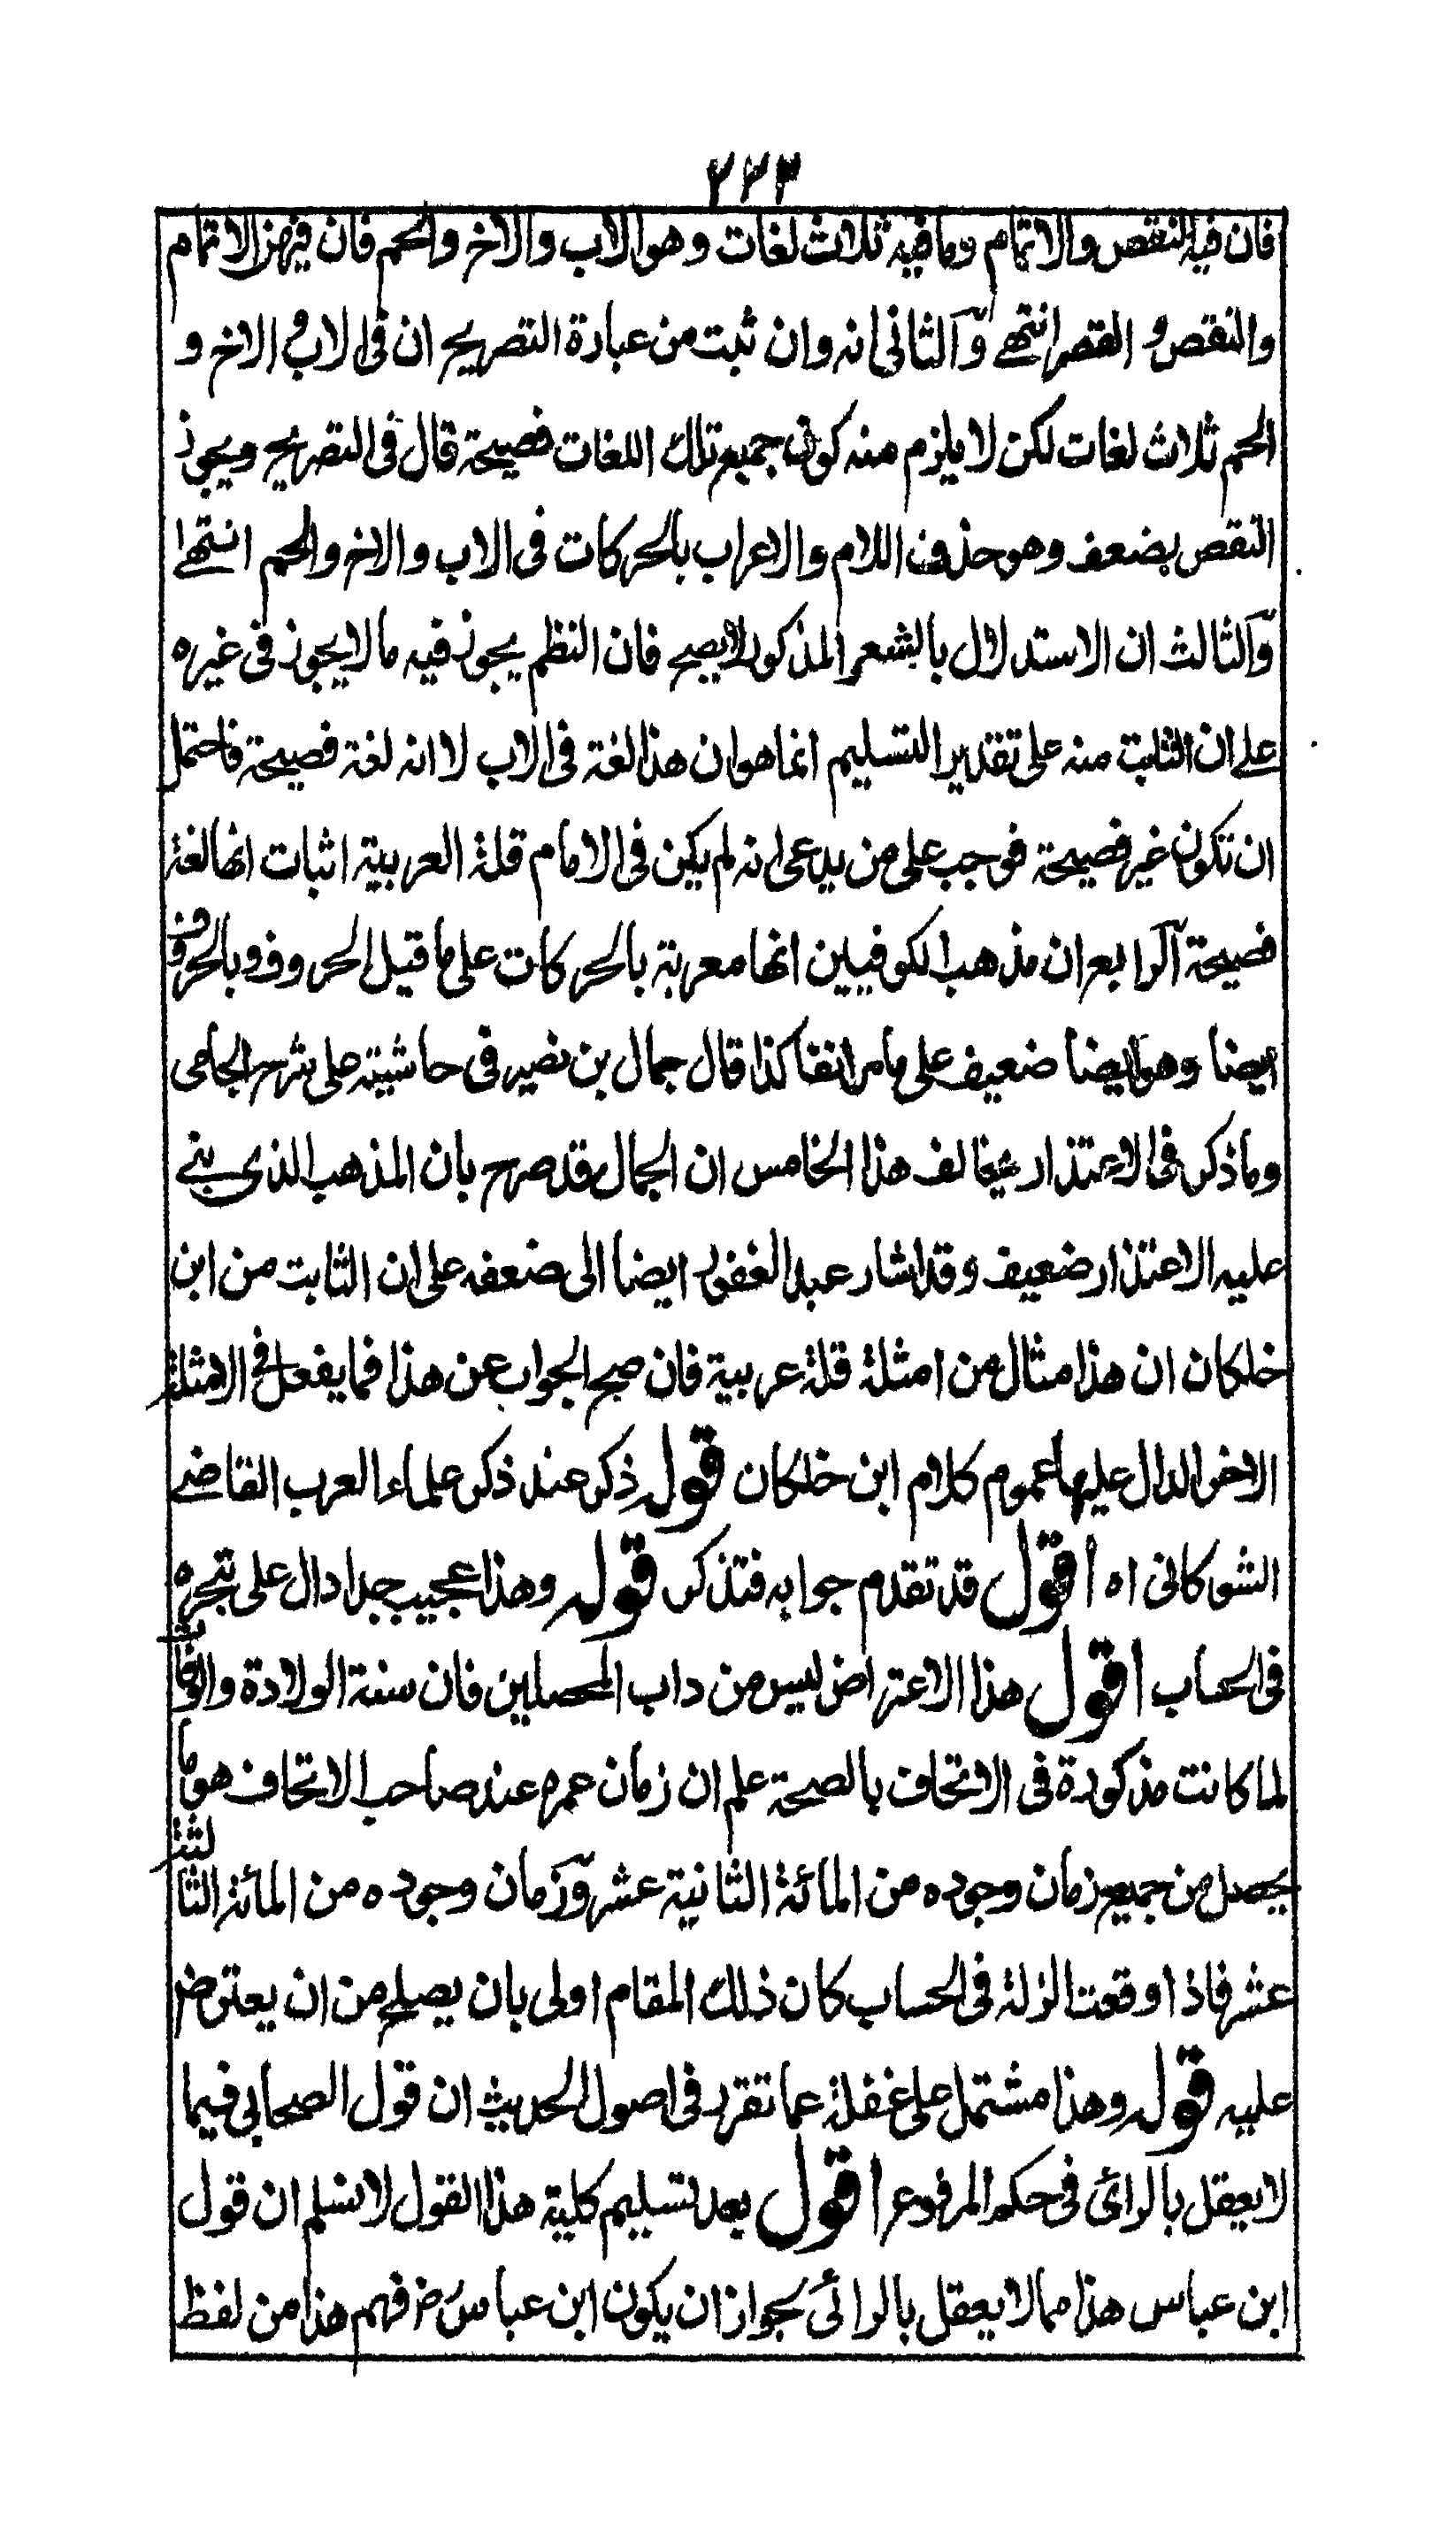 ٣٣٣
فان فيه النقص والاتمام وما فيه ثلاث لغات وهو الاب والاخ والحم فان فيهن الاتمام
والنقص و القصر انتهى وآلثانى انه وان ثبت من عبارة التصريح ان فى الاب و الاخ و
الحم ثلاث لغات لكن لا يلزم منه كون جميع تلك اللغات فصيحة قال فى التصريح ويجوز
النقص بضعف وهو حذف اللام والاعراب بالحركات فى الاب والاخ والحم انتهى
وآلثالث ان الاستدلال بالشعر المذكور لا يصح فان النظم يجوز فيه ما لا يجوز فى غيره
على ان الثابت منه على تقدير التسليم انما هو ان هذا لغة فى الاب لا انه لغة فصيحة فاحتمل
ان تكون غير فصيحة فوجب على من يدعى انه لم يكن فى الامام قلة العربية اثبات انها لغة
فصيحة آلرابع ان مذهب الكوفيين انها معربة بالحركات على ما قبل الحروف وبالحروف
ايضا وهو ايضا ضعيف على ما مر انفا كذا قال جمال بن نصير فى حاشيته على شرح الجامى
وما ذكر فى الاعتذار يخالف هذا الخامس ان الجمال قد صرح بان المذهب الذى بنى
عليه الاعتذار ضعيف وقد اشار عبد الغفور ايضا الى ضعفه على ان الثابت من ابن
خلكان ان هذا مثال من امثلة قلة عربية فان صح الجواب عن هذا فما يفعل فى الامثلة
الاخر الدال عليها عموم كلام ابن خلكان قوله ذكر عند ذكر علماء العرب القاضى
الشوكانى اه اقول قد تقدم جوابه فتذكر قوله وهذا عجيب جدا دال على تبحره
فى الحساب اقول هذا الاعتراض ليس من داب المحصلين فان سنة الولادة والوفاة
لما كانت مذكورة فى الاتحاف بالصحة علم ان زمان عمره عند صاحب الاتحاف هو ما
يحصل من جميع زمان وجوده من المائة الثانية عشر وزمان وجوده من المائة الثالثة
عشر فاذا وقعت الزلة فى الحساب كان ذلك المقام اولى بان يصلح من ان يعترض
عليه قوله وهذا مشتمل على غفلة عما تقرر فى اصول الحديث ان قول الصحابى فيما
لا يعقل بالرائ فى حكم المرفوع اقول بعد تسليم كلية هذا القول لا نسلم ان قول
ابن عباس هذا مما لا يعقل بالرائ لجواز ان يكون ابن عباس رض فهم هذا من لفظ